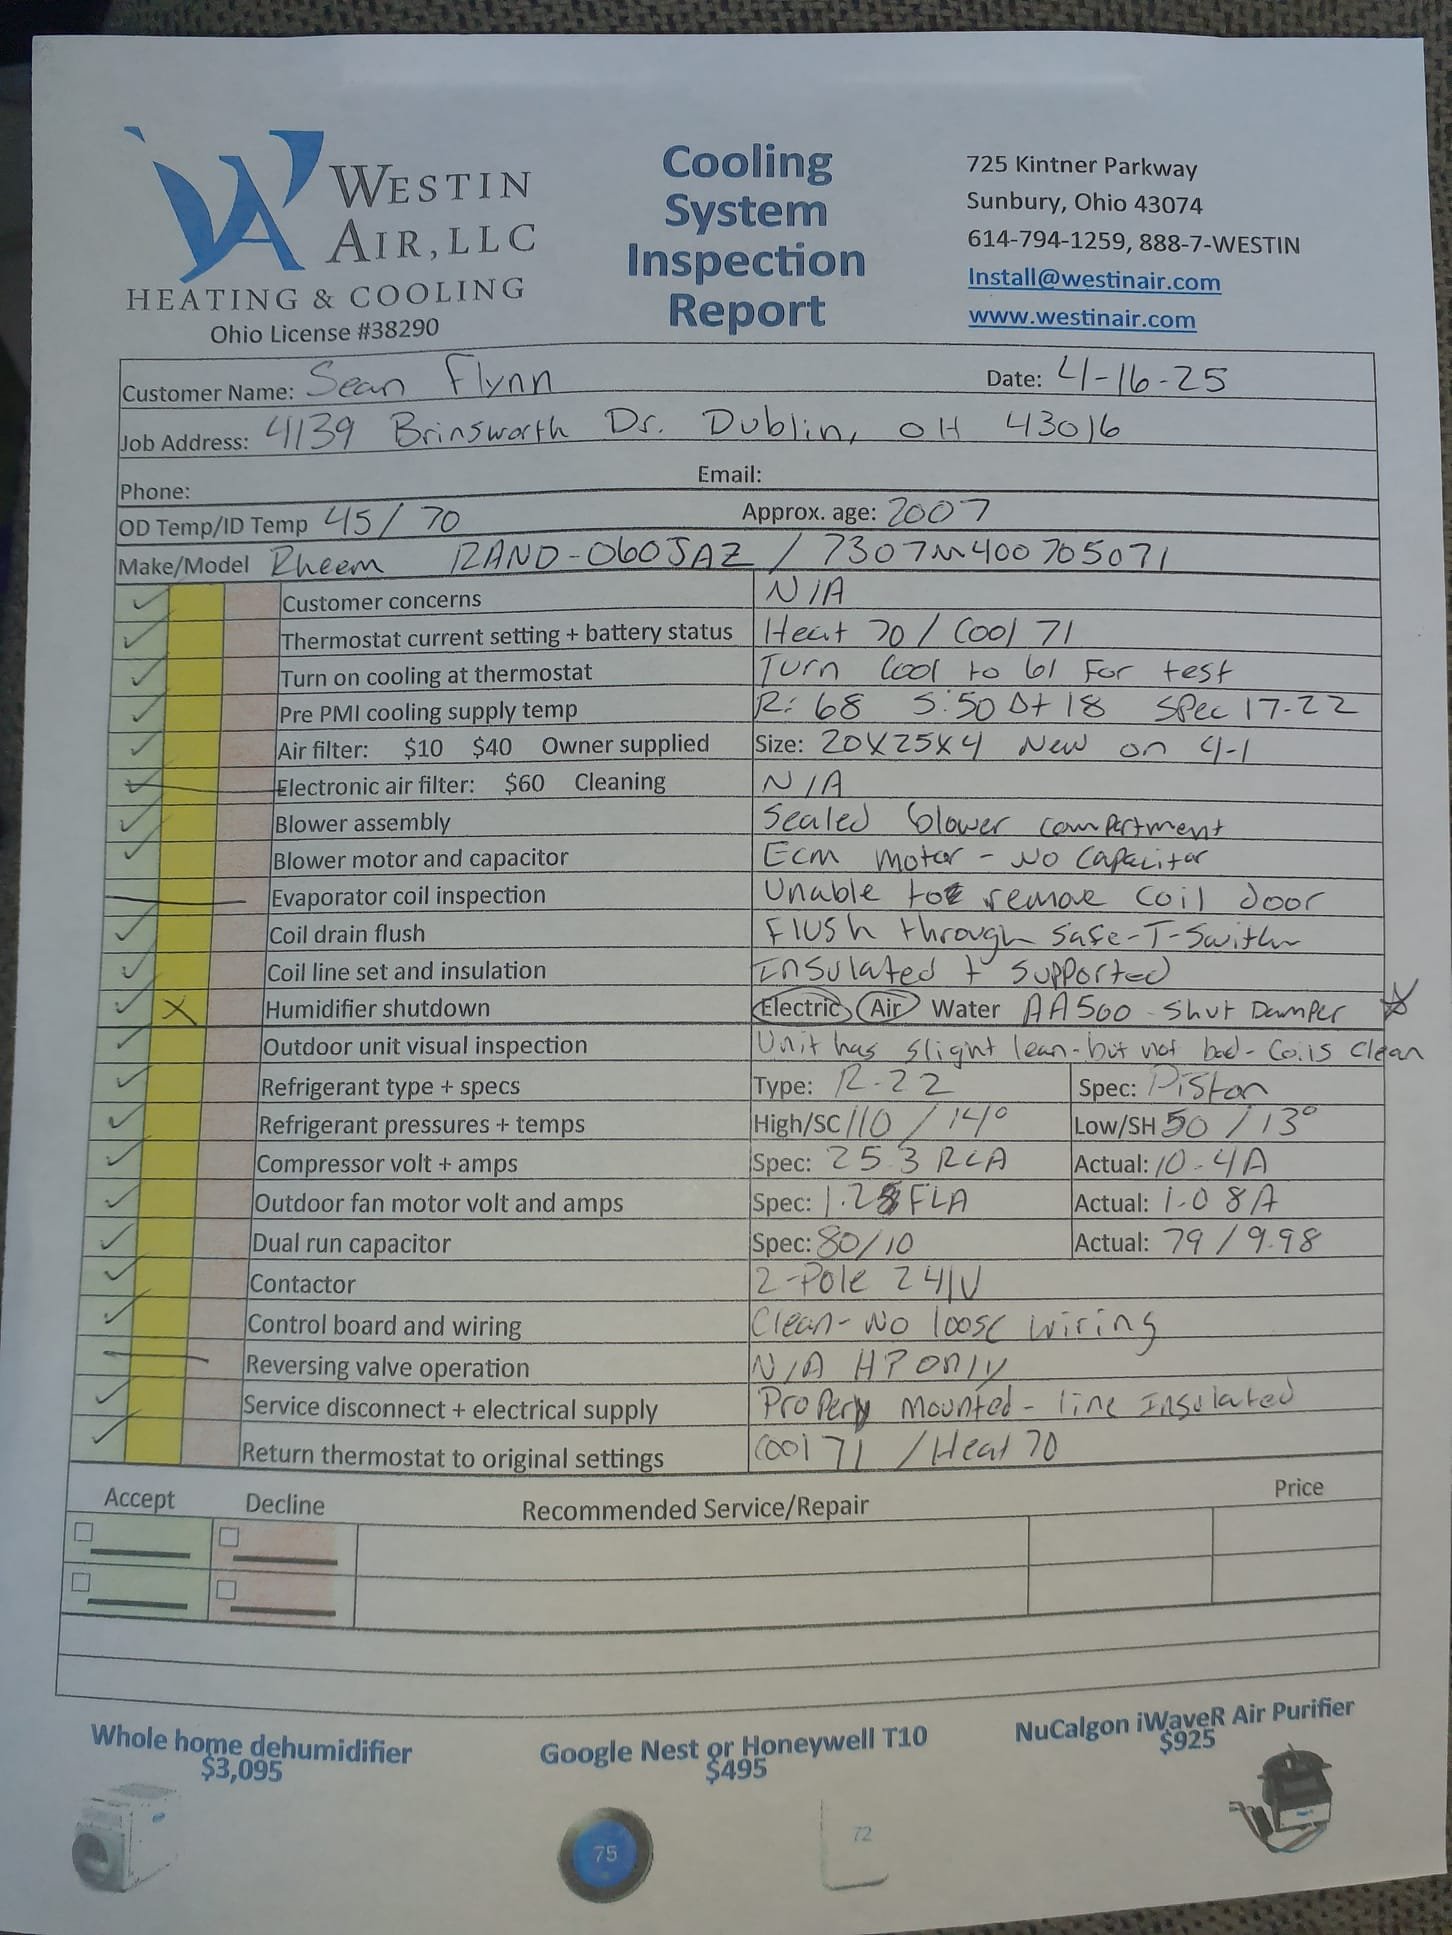 WESTIN AIR, LLC
HEATING & COOLING
Ohio License #38290
Cooling
System
Inspection
Report
725 Kintner Parkway
Sunbury, Ohio 43074
614-794-1259, 888-7-WESTIN
Install@westinair.com
www.westinair.com
Customer Name: Sean Flynn Date: 4-16-25
Job Address: 4139 Brinsworth Dr. Dublin, OH 43016
Phone: Email:
OD Temp/ID Temp 45/ 70 Approx. age: 2007
Make/Model Rheem RAND-060JAZ / 7307M400705071
Customer concerns N/A
Thermostat current setting + battery status Heat 70 / Cool 71
Turn on cooling at thermostat Turn Cool to 61 For test
Pre PMI cooling supply temp R: 68 S: 50 Dt 18 Spec 17-22
Air filter: $10 $40 Owner supplied Size: 20X25X4 New on 4-1
Electronic air filter: $60 Cleaning N/A
Blower assembly Sealed blower compartment
Blower motor and capacitor Ecm motor - No Capacitor
Evaporator coil inspection Unable to remove coil door
Coil drain flush Flush through Safe-T-Swith
Coil line set and insulation Insulated + Supported
X Humidifier shutdown Electric Air Water AA560 - Shut Damper ☆
Outdoor unit visual inspection Unit has slight lean - but not bad - Coils clean
Refrigerant type + specs Type: R-22 Spec: Piston
Refrigerant pressures + temps High/SC 110 / 14° Low/SH 50 / 13°
Compressor volt + amps Spec: 25.3 RLA Actual: 10.4A
Outdoor fan motor volt and amps Spec: 1.28 FLA Actual: 1.08A
Dual run capacitor Spec: 80/10 Actual: 79 / 9.98
Contactor 2-Pole 241V
Control board and wiring Clean - No loose wiring
Reversing valve operation N/A HP only
Service disconnect + electrical supply Propery mounted - line Insulated
Return thermostat to original settings Cool 71 / Heat 70
Accept Decline Recommended Service/Repair Price
Whole home dehumidifier
$3,095
Google Nest or Honeywell T10
$495
NuCalgon iWaveR Air Purifier
$925
75
72